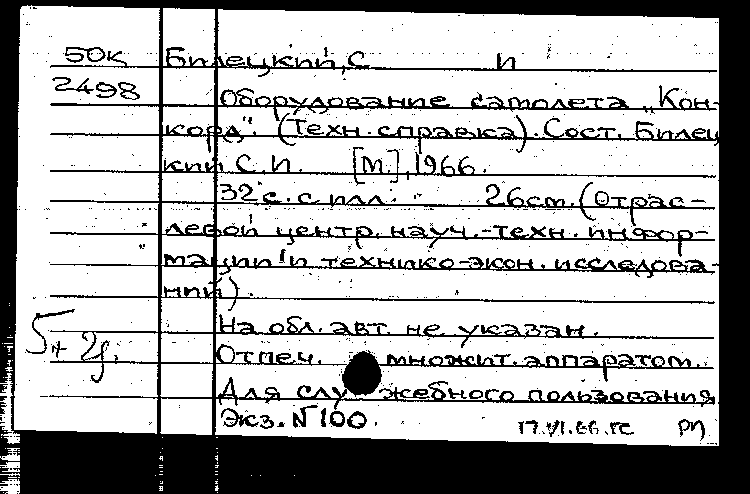 50к Билецкий, С И
2498 Оборудование самолета „Кон-
корд". (Техн. справка). Сост. Билец
кий С.И. [М.], 1966.
32 с. с илл. 26 см. (Отрас-
левой центр. науч.-техн. инфор-
мации и технико-экон. исследова-
ний).
На обл. авт. не указан.
Отпеч. множит. аппаратом.
Для служебного пользования
Экз. № 100.